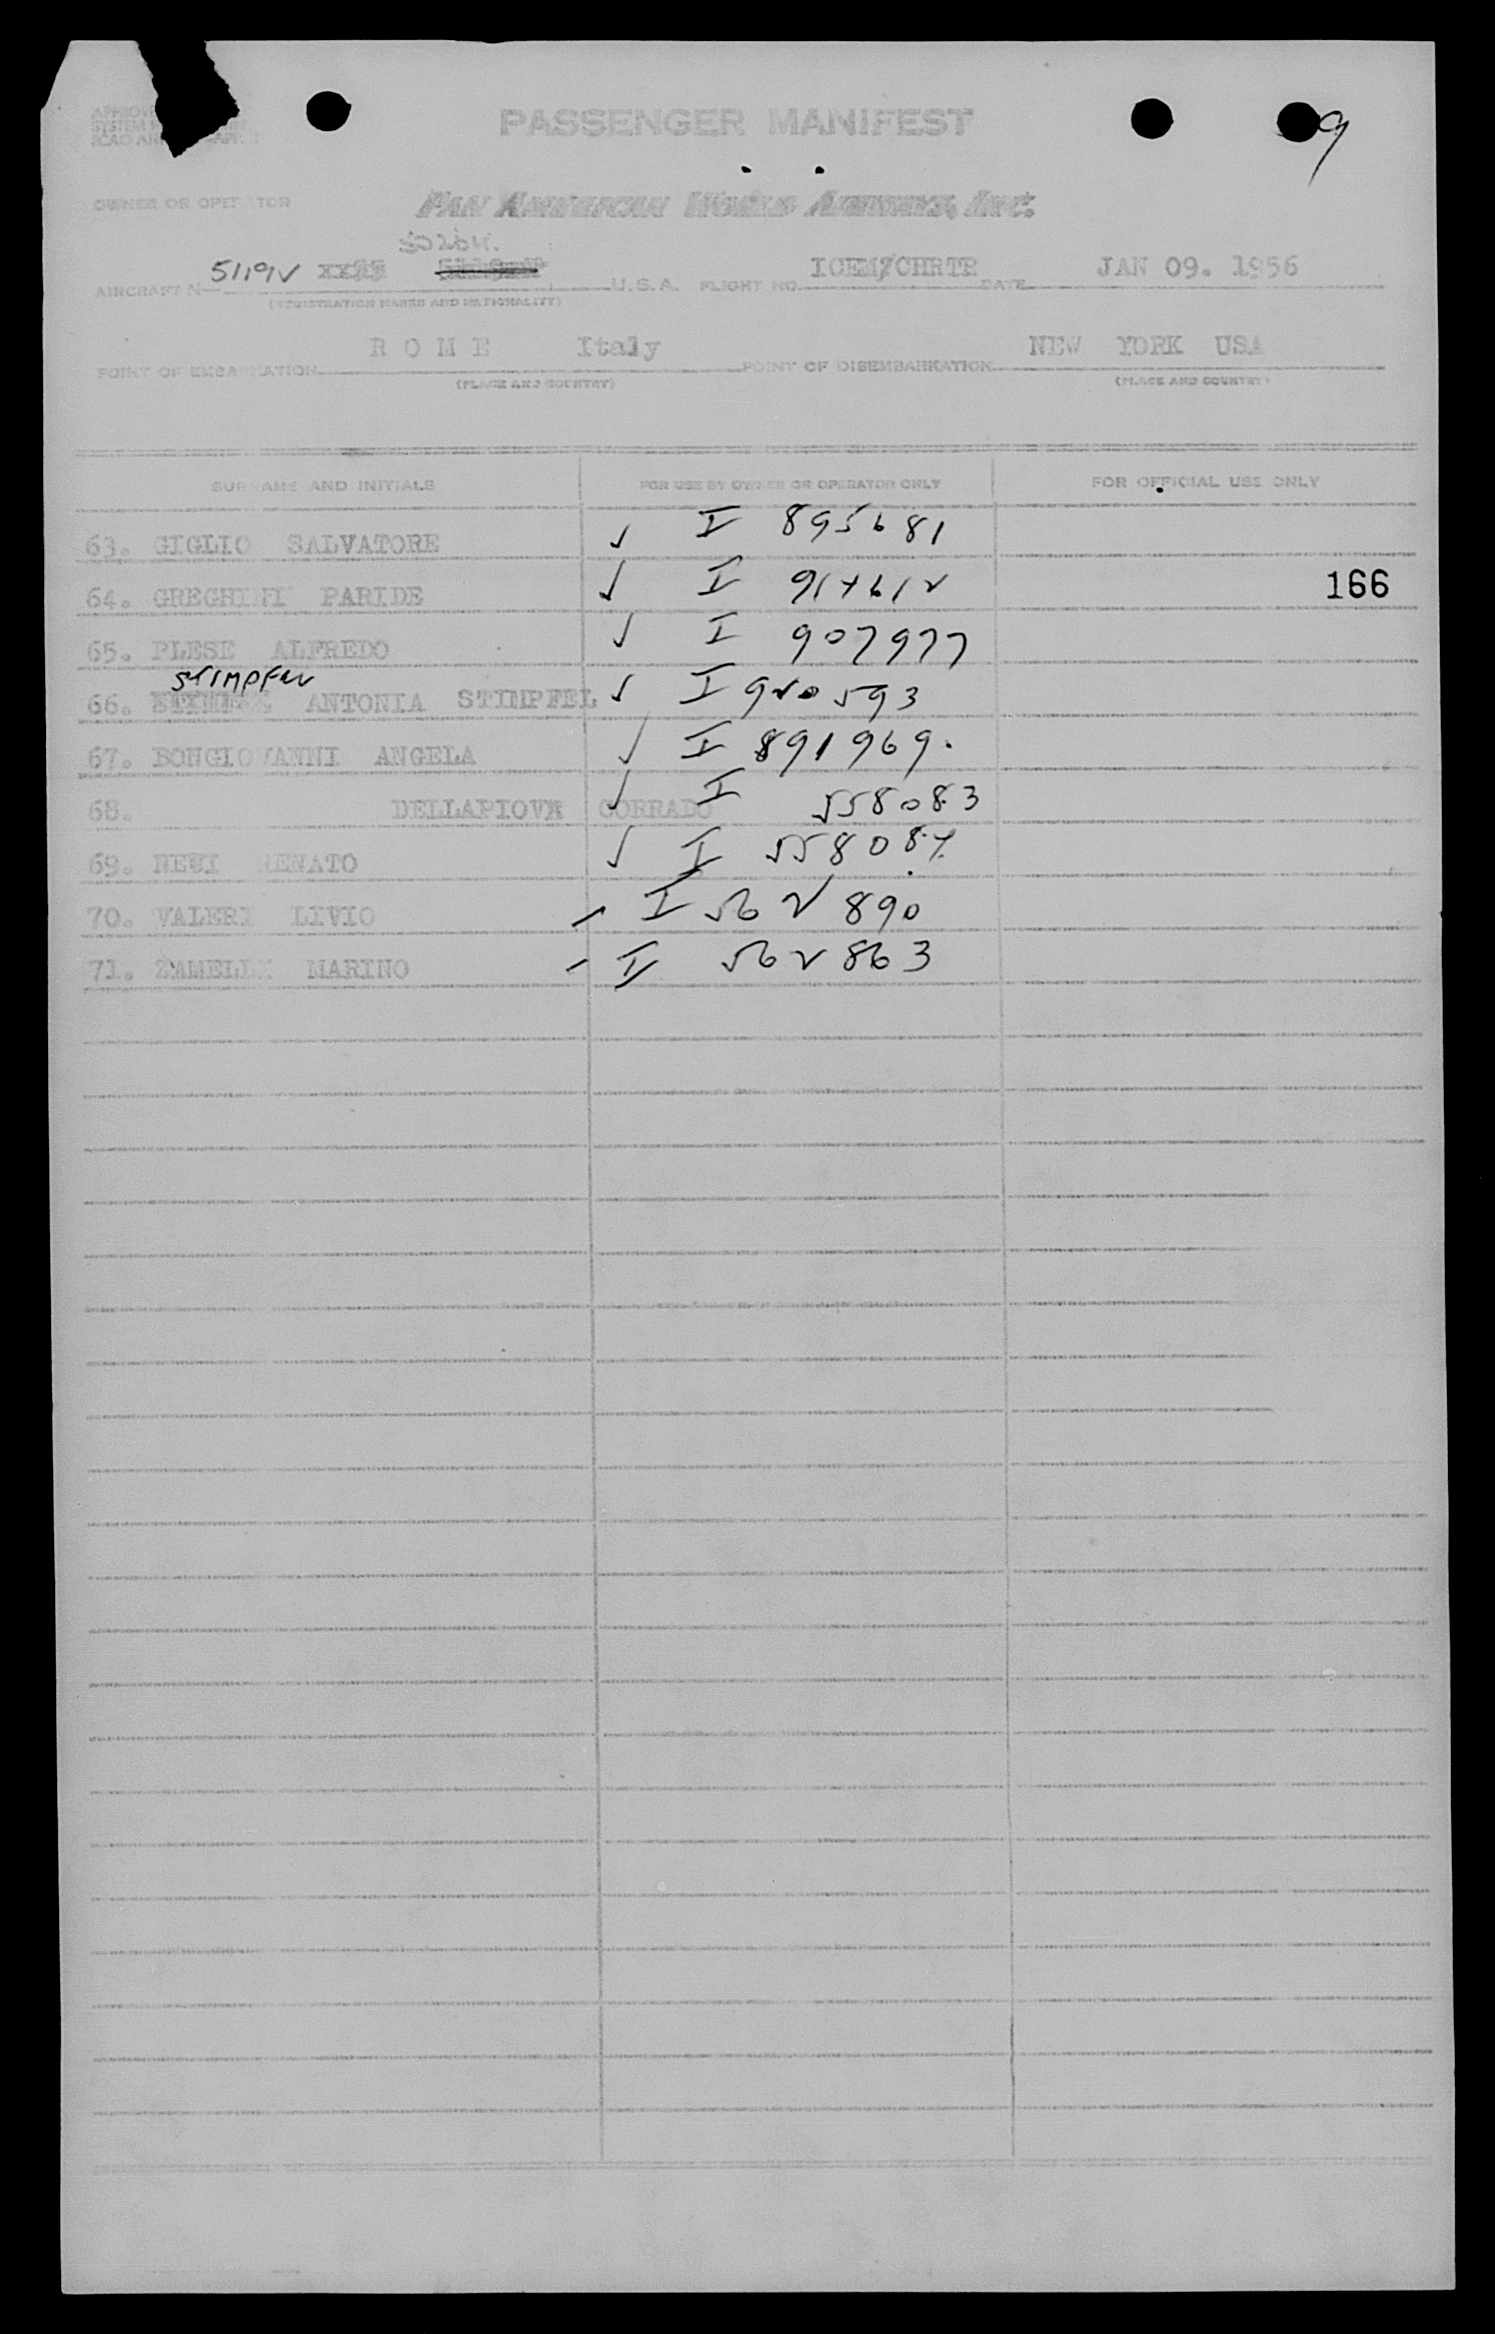 PASSENGER MANIFEST
9
OWNER OR OPERATOR
PAN AMERICAN WORLD AIRWAYS, INC.
AIRCRAFT N 5119V U.S.A. FLIGHT NO. ICEM/CHRTR DATE JAN 09. 1956
(REGISTRATION MARKS AND NATIONALITY)
POINT OF EMBARKATION R O M E Italy POINT OF DISEMBARKATION NEW YORK USA
(PLACE AND COUNTRY) (PLACE AND COUNTRY)
SURNAME AND INITIALS FOR USE BY OWNER OR OPERATOR ONLY FOR OFFICIAL USE ONLY
63. GIGLIO SALVATORE ✓ I 895681
64. GREGHINI PARIDE ✓ I 166
65. PLESE ALFREDO ✓ I 907977
STIMPFEL
66. ANTONIA STIMPFEL ✓ I 920593
67. BONGIOVANNI ANGELA ✓ I 891969.
68. DELLAPIOVA CORRADO ✓ I 558083
69. RENATO ✓ I
70. VALERI LIVIO - I 562890
71. ZAMELLI MARINO - I 562863